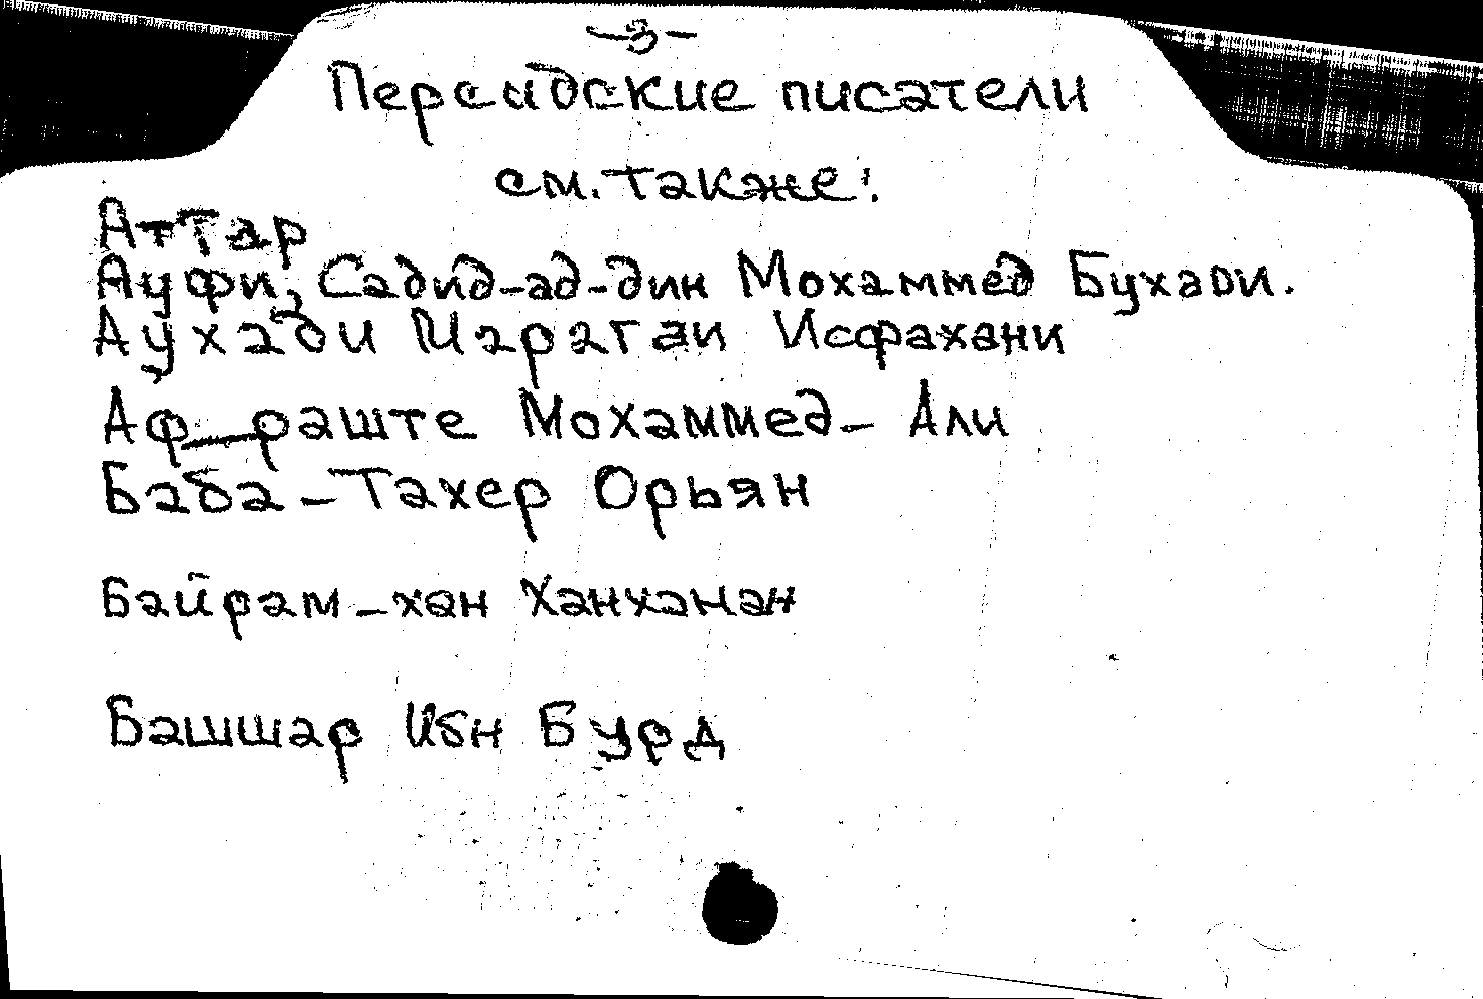 -3-
Персидские писатели
см. также:
Аттар
Ауфи, Садид-ад-дин Мохаммед Бухари.
Аухади Марагаи Исфахани
Аф_раште Мохаммед-Али
Баба-Тахер Орьян
Байрам-хан Ханханан
Башшар Ибн Бурд